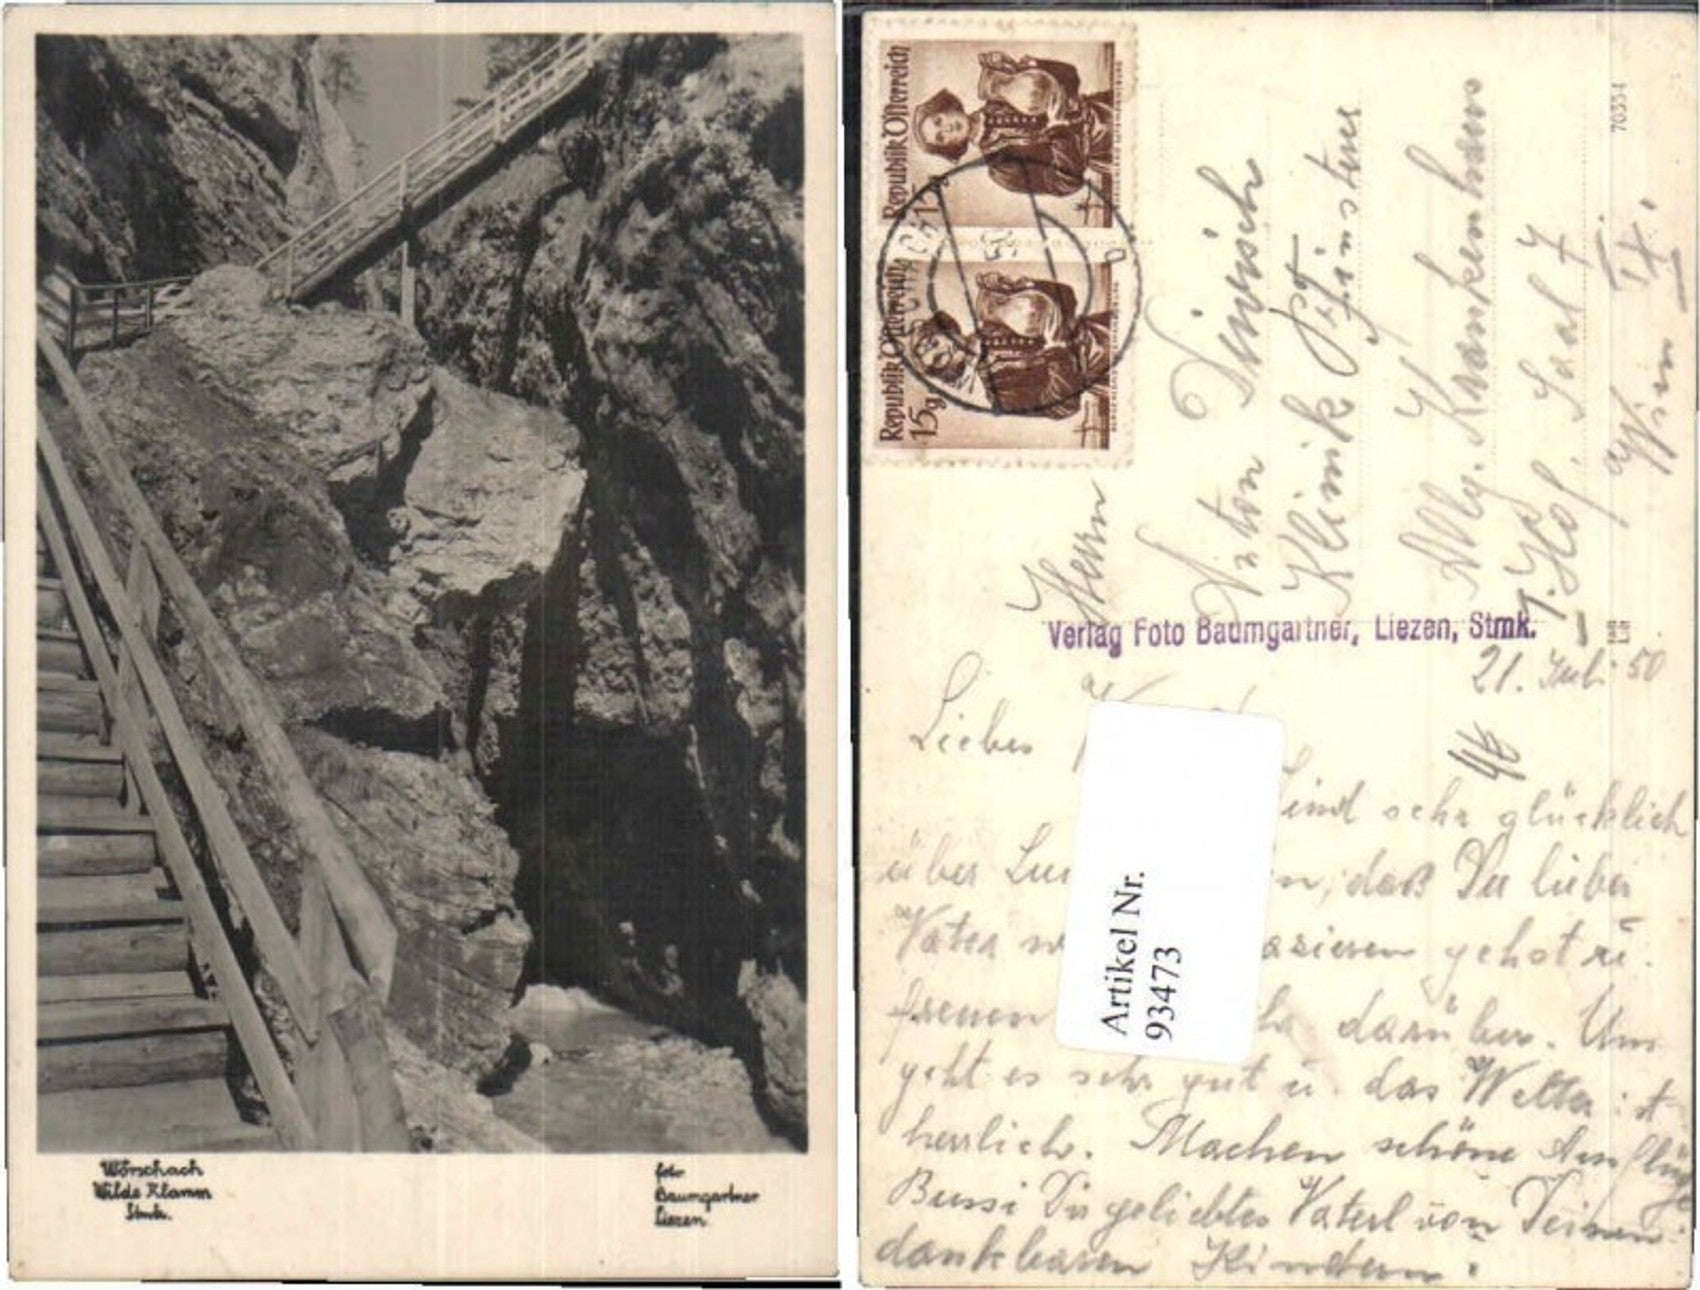 Wörschach
Wilde Klamm
Stmk.
foto
Baumgartner
Liezen
Republik Österreich
15g
Republik Österreich
15g
70334
Herrn
Anton
Klinik
Allg. Krankenhaus
1. Hof, Saal 7
Wien IX.
Verlag Foto Baumgartner, Liezen, Stmk.
21. Juli 50
Liebes
sind sehr glücklich
über daß Du lieber
Vater gehst u.
freuen darüber. Uns
geht es sehr gut u. das Wetter ist
herrlich. Machen schöne Ausflüge
Bussi Dir geliebtes Vaterl von Deinen
dankbaren Kindern.
Artikel Nr.
93473